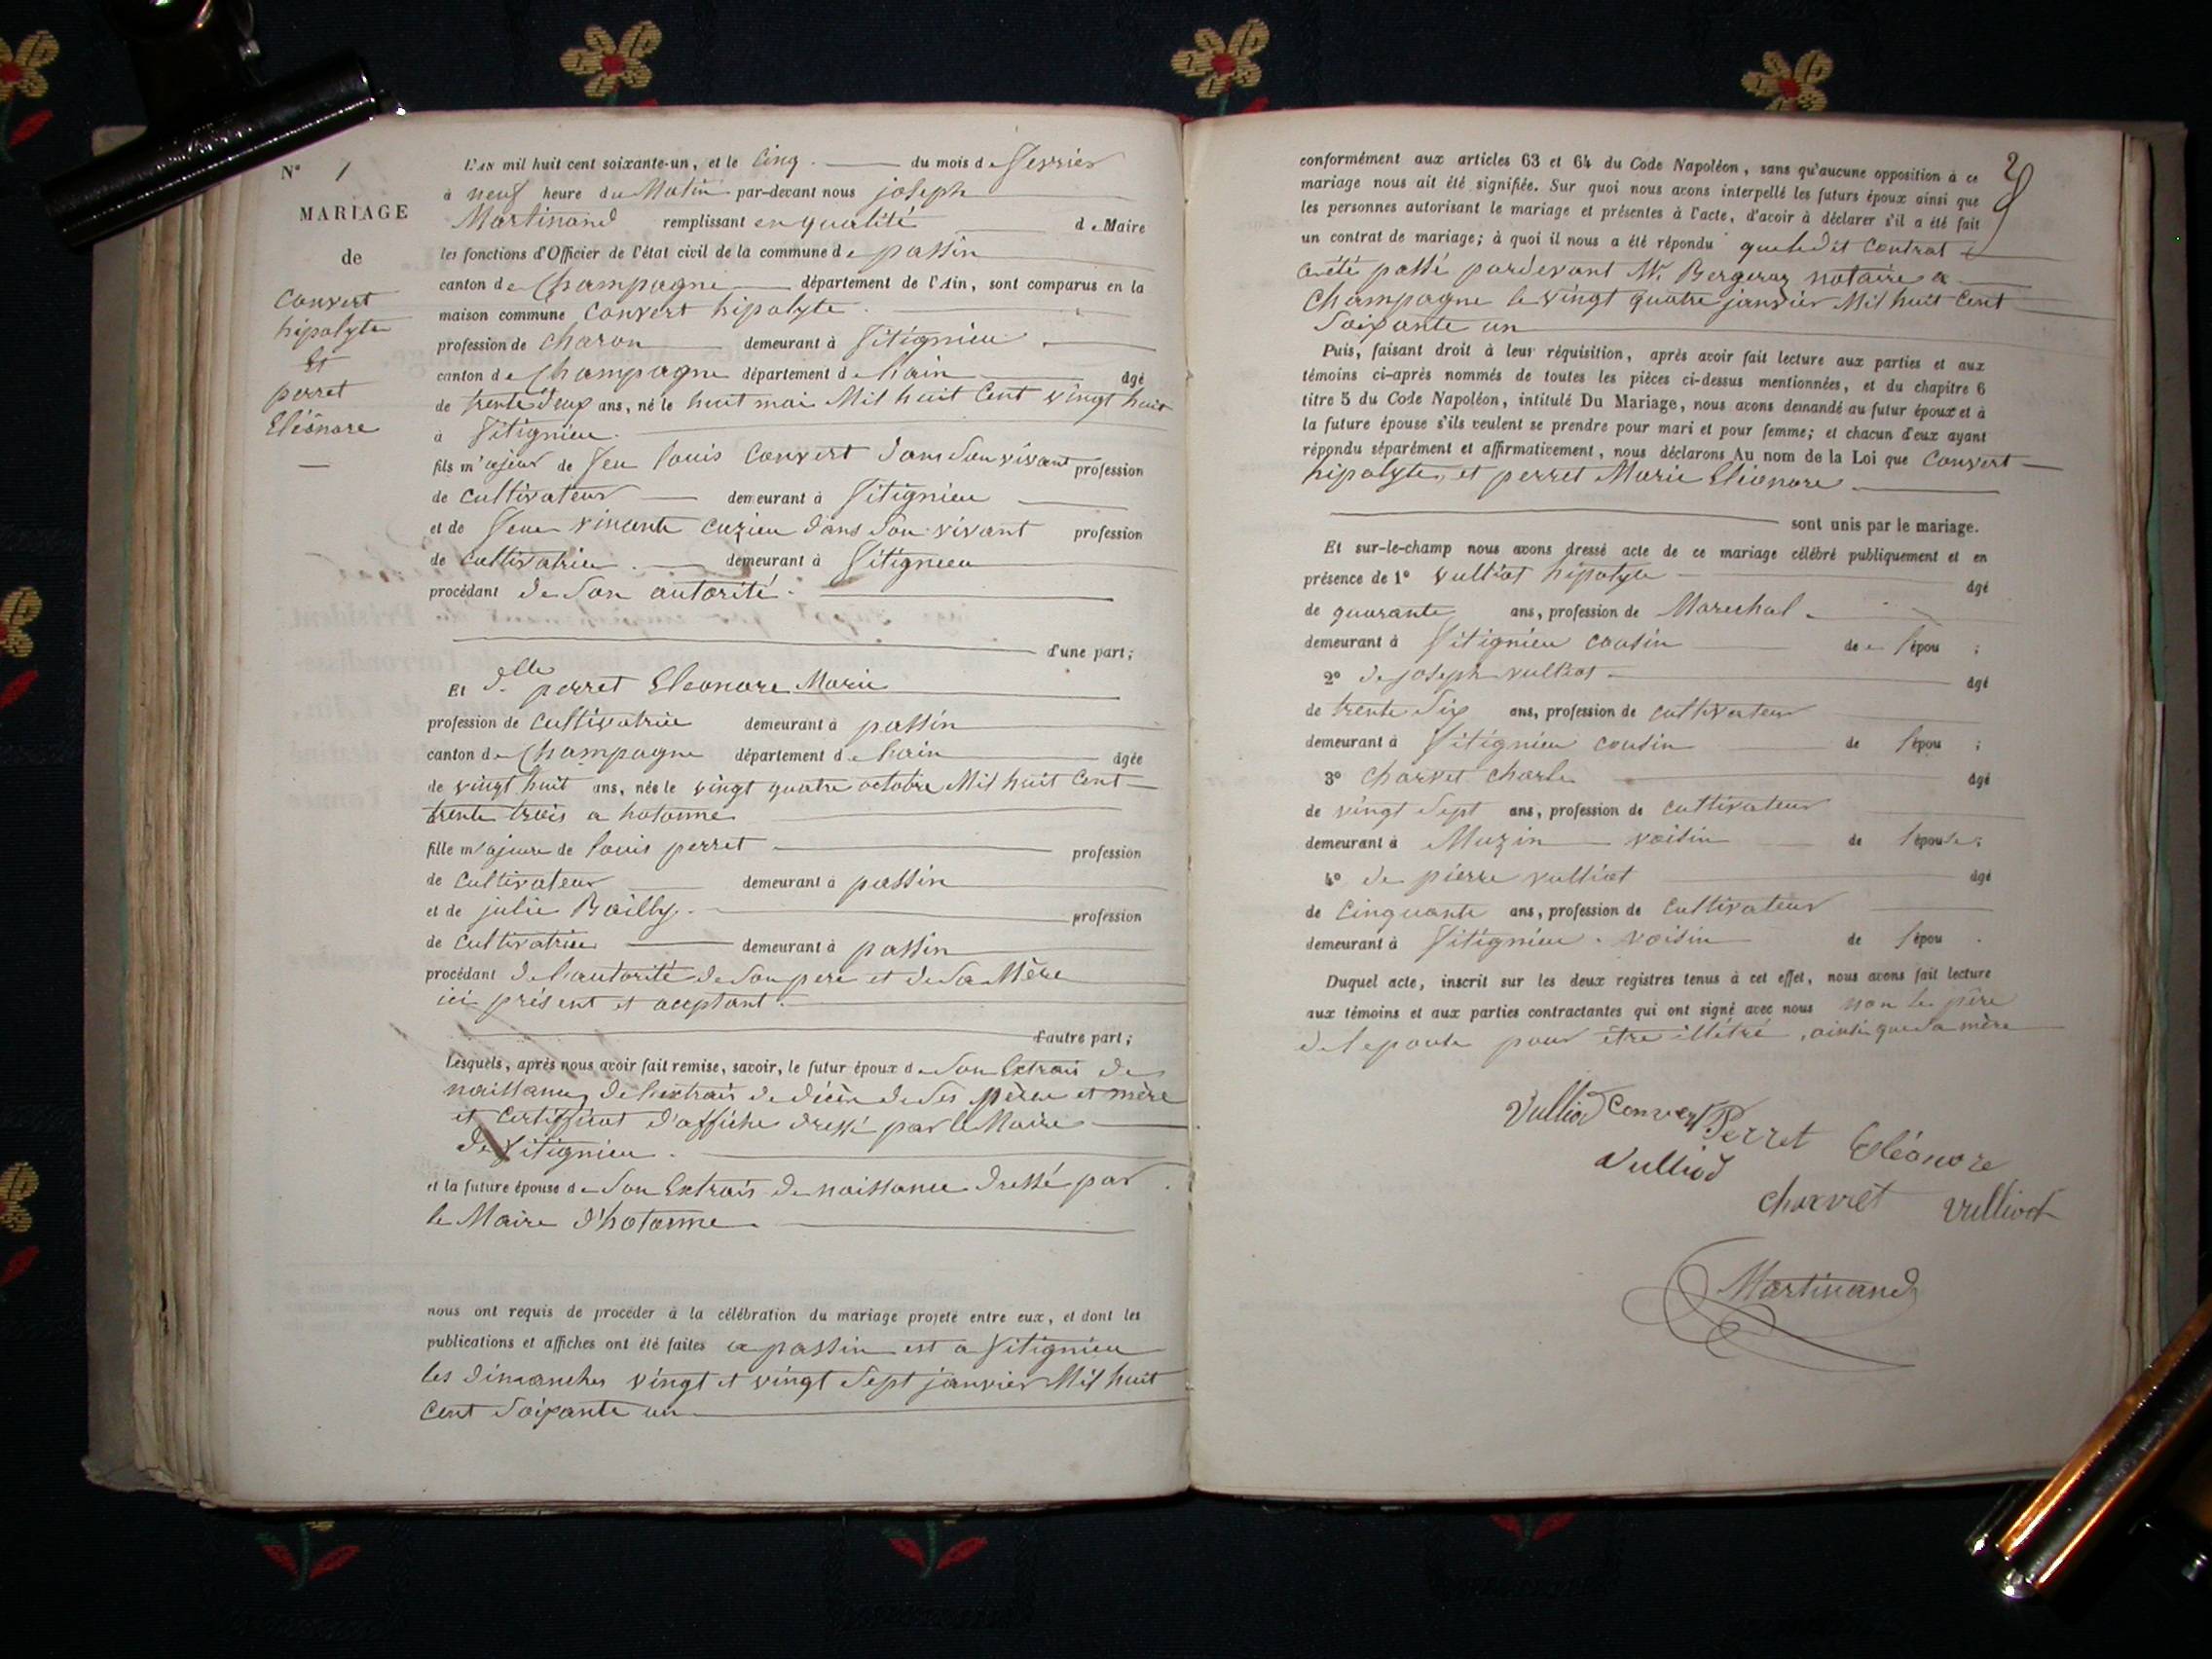 N° 1
MARIAGE
de
Convert
hipolyte
Et
perret
Eléonore
L'AN mil huit cent soixante-un, et le Cinq du mois de fevrier
à neuf heure du Matin par-devant nous joseph
Martinand remplissant en qualité de Maire
les fonctions d'Officier de l'état civil de la commune de passin
canton de Champagne département de l'Ain, sont comparus en la
maison commune Convert hipolyte
profession de charon demeurant à Vitignieu
canton de Champagne département de l'ain âgé
de trente deux ans, né le huit mai Mil huit Cent vingt huit
à Vitignieu
fils majeur de feu louis Convert dans son vivant profession
de cultivateur demeurant à Vitignieu
et de feue vincente cuzieu dans son vivant profession
de cultivatrice demeurant à Vitignieu
procédant de son autorité
d'une part;
Et delle perret Eleonore Marie
profession de cultivatrice demeurant à passin
canton de Champagne département de l'ain âgée
de vingt huit ans, née le vingt quatre octobre Mil huit Cent
trente trois a hotonne
fille majeure de louis perret profession
de Cultivateur demeurant à passin
et de julie Bailly profession
de Cultivatrice demeurant à passin
procédant de l'autorité de son pere et de sa Mère
ici présent et aceptant
d'autre part;
Lesquels, après nous avoir fait remise, savoir, le futur époux de son Extrais de
naissance, de l'extrais de décès de ses père et mère
et Certifficat d'affiche dressé par le Maire
de Vitignieu
et la future épouse de son Extrais de naissance dressé par
le Maire d'hotonne
nous ont requis de procéder à la célébration du mariage projeté entre eux, et dont les
publications et affiches ont été faites a passin est a Vitignieu
les dimanches vingt et vingt sept janvier Mil huit
Cent soixante un
2
conformément aux articles 63 et 64 du Code Napoléon, sans qu'aucune opposition à ce
mariage nous ait été signifiée. Sur quoi nous avons interpellé les futurs époux ainsi que
les personnes autorisant le mariage et présentes à l'acte, d'avoir à déclarer s'il a été fait
un contrat de mariage; à quoi il nous a été répondu que ledit contrat
a été passé pardevant Mr. Bergeraz notaire a
Champagne le vingt quatre janvier Mil huit Cent
Soixante un
Puis, faisant droit à leur réquisition, après avoir fait lecture aux parties et aux
témoins ci-après nommés de toutes les pièces ci-dessus mentionnées, et du chapitre 6
titre 5 du Code Napoléon, intitulé Du Mariage, nous avons demandé au futur époux et à
la future épouse s'ils veulent se prendre pour mari et pour femme; et chacun d'eux ayant
répondu séparément et affirmativement, nous déclarons Au nom de la Loi que Convert
hipolyte, et perret Marie Eléonore
sont unis par le mariage.
Et sur-le-champ nous avons dressé acte de ce mariage célébré publiquement et en
présence de 1° Vulliot hipolyte âgé
de quarante ans, profession de Marechal
demeurant à Vitignieu cousin de l'épou ;
2° de joseph vulliot âgé
de trente six ans, profession de cultivateur
demeurant à Vitignieu cousin de l'épou ;
3° Charvet Charle âgé
de vingt sept ans, profession de cultivateur
demeurant à Muzin voisin de l'épouse;
4° de pierre vulliot âgé
de Cinquante ans, profession de Cultivateur
demeurant à Vitignieu voisin de l'épou .
Duquel acte, inscrit sur les deux registres tenus à cet effet, nous avons fait lecture
aux témoins et aux parties contractantes qui ont signé avec nous non le père
de l'epouse pour être illétré, ainsi que sa mère
Vulliod Convert Perret Eléonore
Vulliod
Charvet Vulliod
Martinand